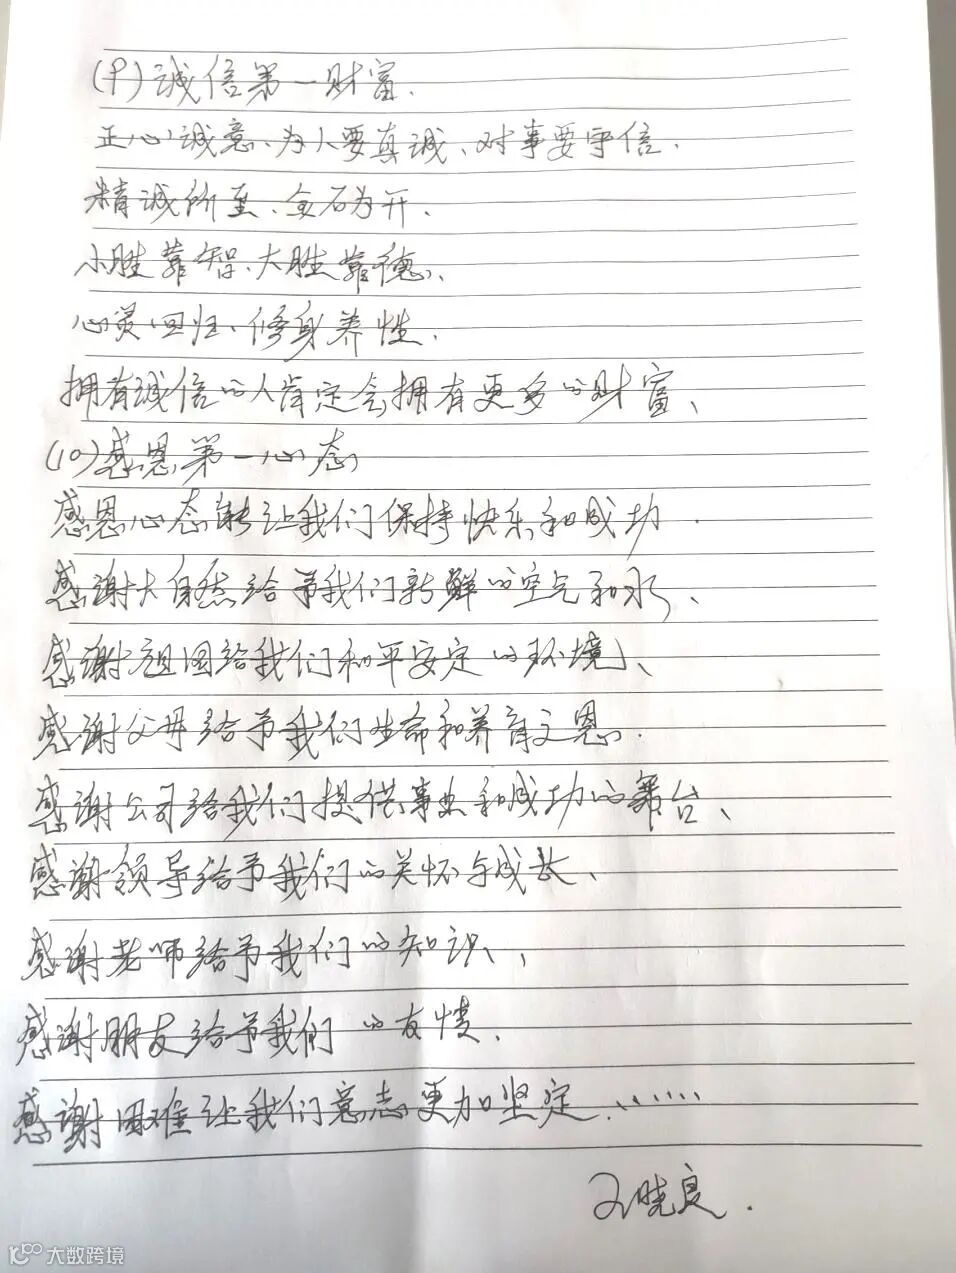 (9)诚信第一财富.
正心诚意、为人要真诚、对事要守信.
精诚所至、金石为开.
小胜靠智、大胜靠德、
心灵回归、修身养性.
拥有诚信的人肯定会拥有更多的财富、
(10)感恩第一心态
感恩心态能让我们保持快乐和成功.
感谢大自然给予我们新鲜的空气和水、
感谢祖国给我们和平安定的环境、
感谢父母给予我们生命和养育之恩.
感谢公司给我们提供事业和成功的舞台、
感谢领导给予我们的关怀与成长、
感谢老师给予我们的知识、
感谢朋友给予我们的友情.
感谢困难让我们意志更加坚定......
王晓良.
大数跨境